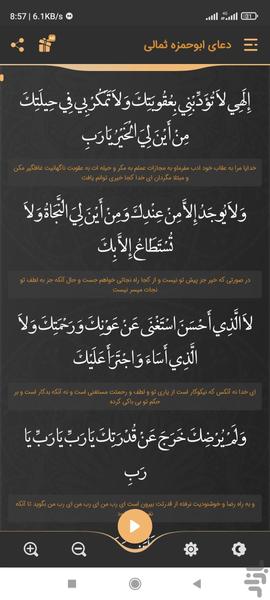 8:57 | 6.1KB/s
دعای ابوحمزه ثمالی
إِلَهِي لاَ تُؤَدِّبْنِي بِعُقُوبَتِكَ وَ لاَ تَمْكُرْ بِي فِي حِيلَتِكَ
مِنْ أَيْنَ لِيَ الْخَيْرُ يَا رَبِّ
خدایا مرا به عقاب خود ادب مفرماو به مجازات عملم به مکر و حیله ات به عقوبت ناگهانیت غافلگیر مکن
و مبتلا مگردان ای خدا کجا خیری توانم یافت
وَ لاَ يُوجَدُ إِلاَّ مِنْ عِنْدِكَ وَ مِنْ أَيْنَ لِيَ النَّجَاةُ وَ لاَ
تُسْتَطَاعُ إِلاَّ بِكَ
در صورتی که خیر جز پیش تو نیست و از کجا راه نجاتی خواهم جست و حال آنکه جز به لطف تو
نجات میسر نیست
لاَ الَّذِي أَحْسَنَ اسْتَغْنَى عَنْ عَوْنِكَ وَ رَحْمَتِكَ وَ لاَ
الَّذِي أَسَاءَ وَ اجْتَرَأَ عَلَيْكَ
ای خدا نه آنکس که نیکوکار است از یاری تو و لطف و رحمتت مستغنی است و نه آنکه بدکار است و بر
حکم تو بی باکی کرده
وَ لَمْ يُرْضِكَ خَرَجَ عَنْ قُدْرَتِكَ يَا رَبِّ يَا رَبِّ يَا
رَبِّ
و به راه رضا و خوشنودیت نرفته از قدرتت بیرون است ای رب من ای رب من ای رب من بگوید تا آنکه
بازار